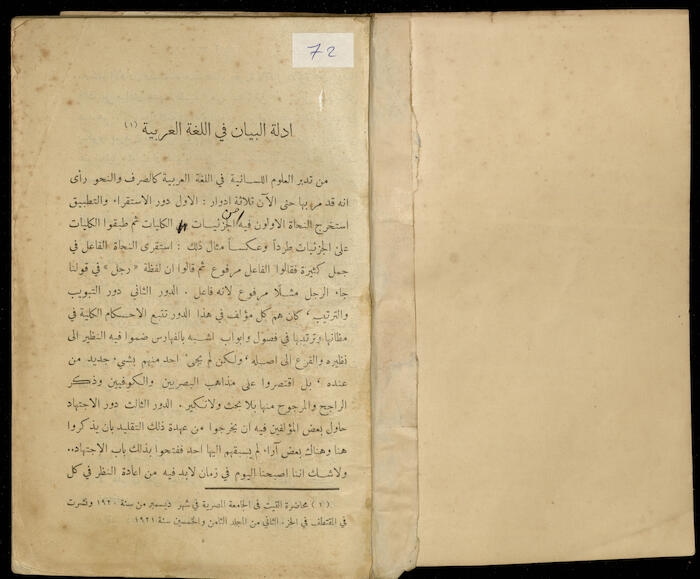 72
ادلة البيان في اللغة العربية (١)
من تدبر العلوم اللسانية في اللغة العربية كالصرف والنحو رأى
انه قد مر بها حتى الآن ثلاثة ادوار : الاول دور الاستقراء والتطبيق
استخرج النحاة الاولون فيه من الجزئيات الكليات ثم طبقوا الكليات
على الجزئيات طرداً وعكساً مثال ذلك : استقرى النحاة الفاعل في
جمل كثيرة فقالوا الفاعل مرفوع ثم قالوا ان لفظة « رجل » في قولنا
جاء الرجل مثلاً مرفوع لانه فاعل . الدور الثاني دور التبويب
والترتيب ، كان هم كل مؤلف في هذا الدور تتبع الاحكام الكلية في
مظانها وترتيبها في فصول وابواب اشبه بالفهارس ضموا فيه النظير الى
نظيره والفرع الى اصله ، ولكن لم يجىء احد منهم بشيء جديد من
عنده ، بل اقتصروا على مذاهب البصريين والكوفيين وذكر
الراجح والمرجوح منها بلا بحث ولا نكير . الدور الثالث دور الاجتهاد
حاول بعض المؤلفين فيه ان يخرجوا من عهدة ذلك التقليد بان يذكروا
هنا وهناك بعض آراء لم يسبقهم اليها احد ففتحوا بذلك باب الاجتهاد..
ولا شك اننا اصبحنا اليوم في زمان لابد فيه من اعادة النظر في كل
(١) محاضرة القيت في الجامعة المصرية في شهر ديسمبر من سنة ١٩٢٠ ونشرت
في المقتطف في الجزء الثاني من المجلد الثامن والخمسين سنة ١٩٢١